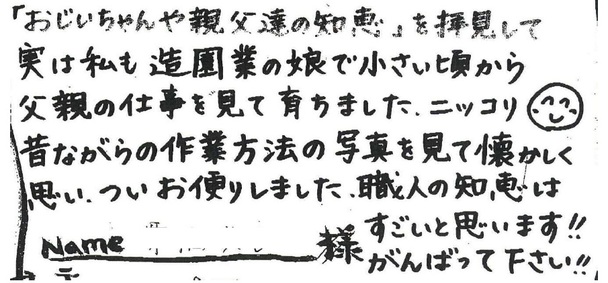 「おじいちゃんや親父達の知恵」を拝見して
実は私も造園業の娘で小さい頃から
父親の仕事を見て育ちました。ニッコリ
昔ながらの作業方法の写真を見て懐かしく
思い、ついお便りしました。職人の知恵は
すごいと思います!!
がんばって下さい!!
Name 様